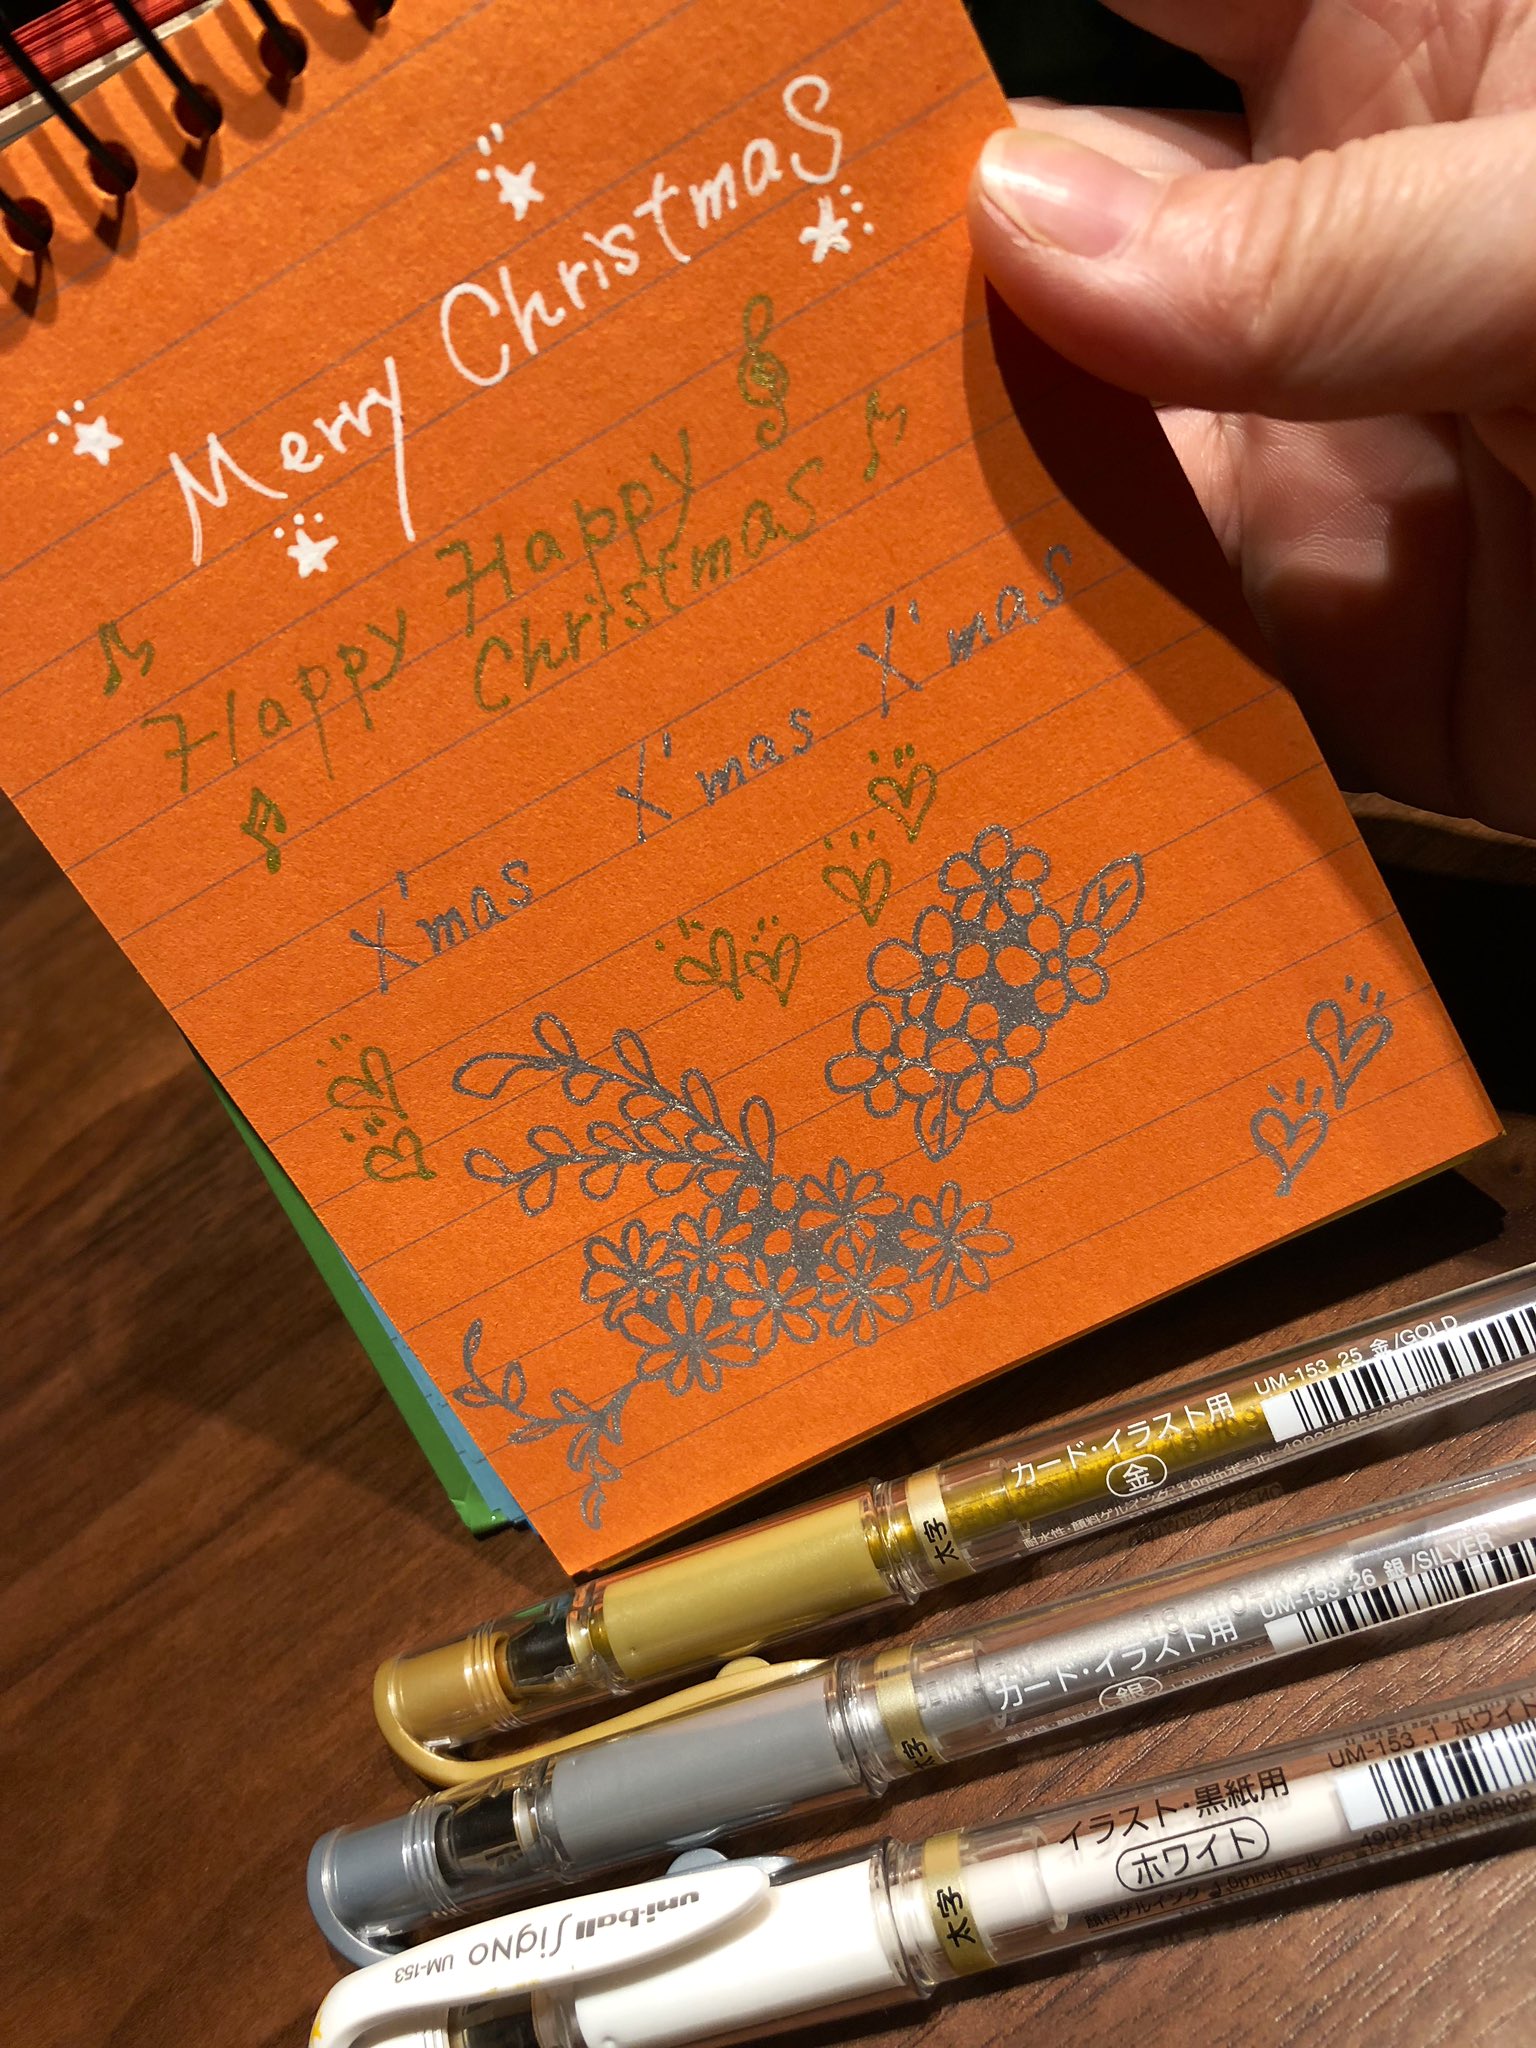 Merry Christmas
Happy Happy
Christmas
X'mas X'mas X'mas
UM-153 .25 金/GOLD
カード・イラスト用
金
太字
耐水性・顔料ゲルインク
UM-153 .26 銀/SILVER
カード・イラスト用
銀
太字
UM-153 .1 ホワイト
イラスト・黒紙用
ホワイト
太字
顔料ゲルインク 1.0mmボール
uni-ball SigNO UM-153